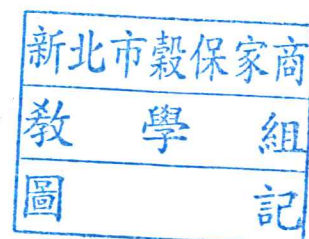 新北市穀保家商
教學組
圖記